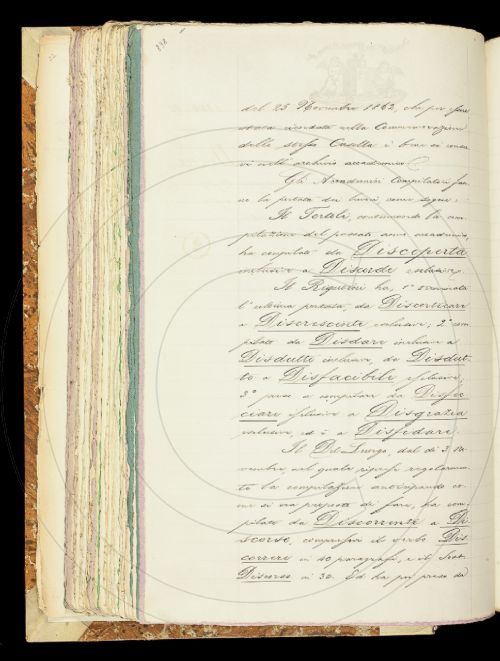 898
del 25 Novembre 1862, che per
stata ricordata nella Commemorazione
dello stesso Casella i bravi si conser
vi nello archivio accademico.
Gli Accademici Compilatori fan
no la portata dei lavori come segue:
Il Tortoli, continuando la com
pilazione del passato anno accademico,
ha compilato da Discoperta
inclusive a Discorde exclusive.
Il Rigutini ha, 1° terminata
l'ultima portata, da Discorticare
a Discrescente exclusive; 2° com
pilato da Disdare inclusive a
Disdutto inclusive, da Disdut
to a Disfacibile exclusive;
3° preso a compilare da Disfac
ciare exclusive a Disgrazia
exclusive, ed è a Disfidare.
Il Del Lungo, dal dì 3 No
vembre, nel quale riprese regolarmen
te la compilazione anticipando co
me si era proposto di fare, ha com
pilato da Discorrente a Di
scorso, compresovi il verbo Dis
correre in 40 paragrafi, e il Sost.
Discorso in 30. Ed ha poi preso da